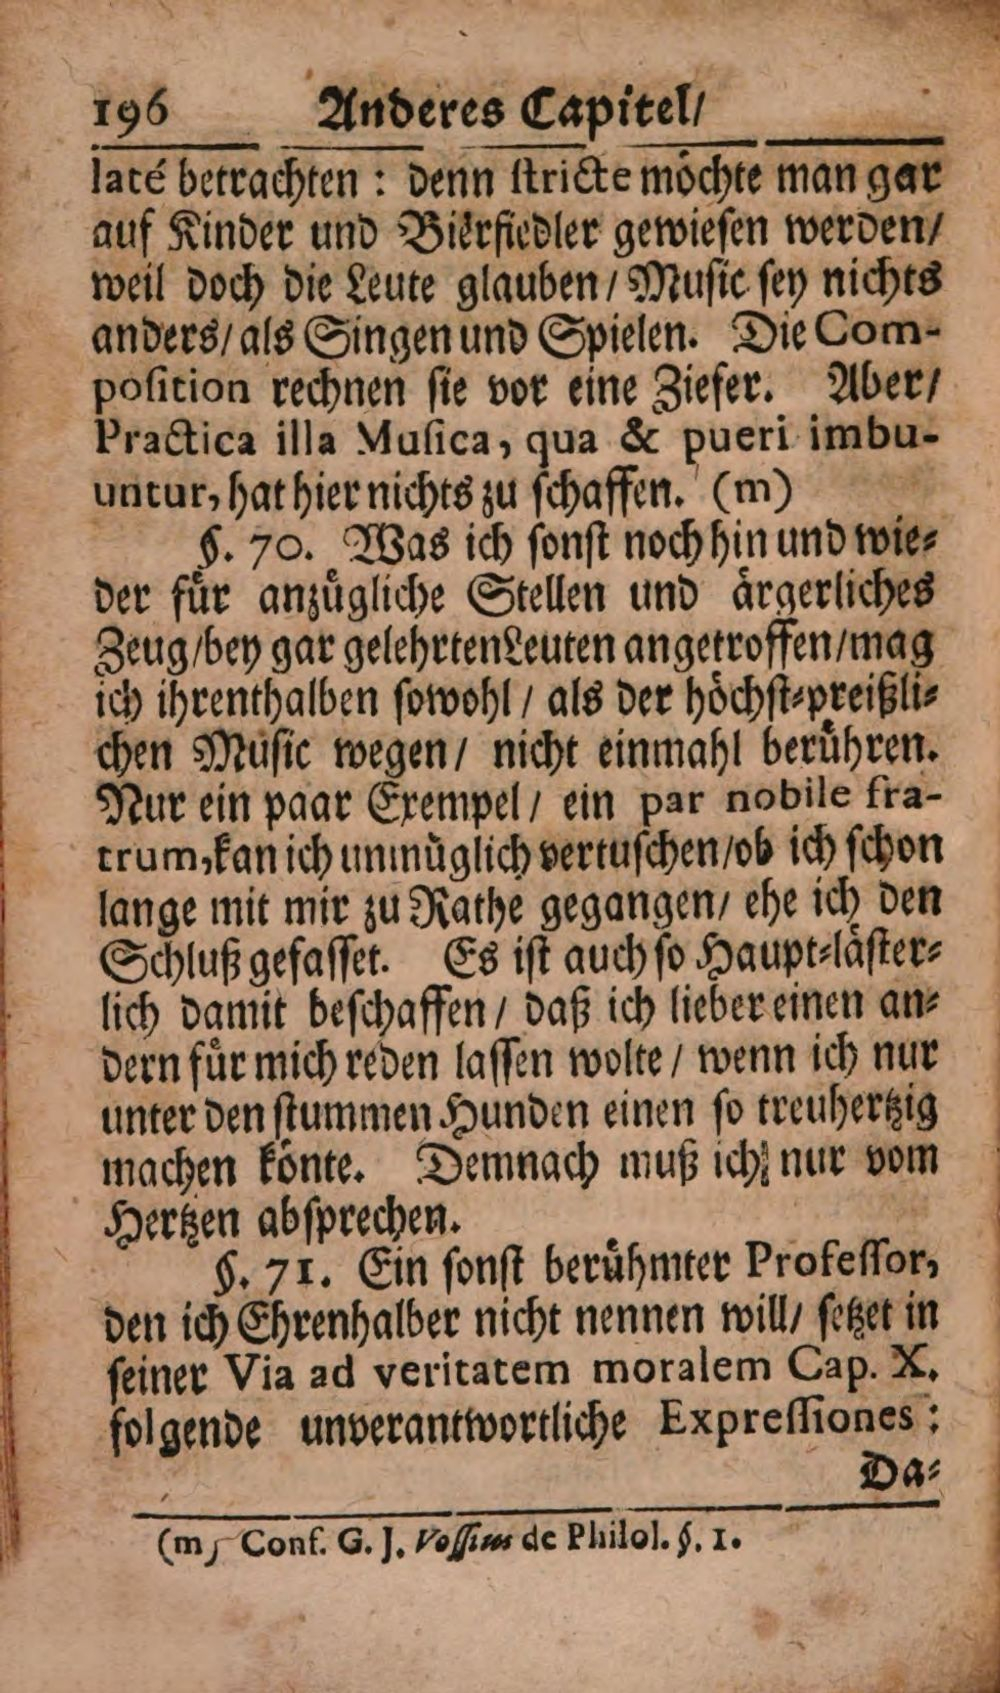 196 Anderes Capitel/
laté betrachten : denn stricte möchte man gar
auf Kinder und Bierfiedler gewiesen werden/
weil doch die Leute glauben / Music sey nichts
anders/ als Singen und Spielen. Die Com-
position rechnen sie vor eine Ziefer. Aber/
Practica illa Musica, qua & pueri imbu-
untur, hat hier nichts zu schaffen. (m)
§. 70. Was ich sonst noch hin und wie-
der für anzügliche Stellen und ärgerliches
Zeug/bey gar gelehrten Leuten angetroffen/mag
ich ihrenthalben sowohl / als der höchst-preißli-
chen Music wegen/ nicht einmahl berühren.
Nur ein paar Exempel/ ein par nobile fra-
trum, kan ich unmüglich vertuschen/ob ich schon
lange mit mir zu Rathe gegangen/ ehe ich den
Schluß gefasset. Es ist auch so Haupt-läster-
lich damit beschaffen / daß ich lieber einen an-
dern für mich reden lassen wolte / wenn ich nur
unter den stummen Hunden einen so treuhertzig
machen könte. Demnach muß ich nur vom
Hertzen absprechen.
§. 71. Ein sonst berühmter Professor,
den ich Ehrenhalber nicht nennen will/ setzet in
seiner Via ad veritatem moralem Cap. X.
folgende unverantwortliche Expressiones :
Da-
(m) Conf. G. J. Vossius de Philol. §. 1.